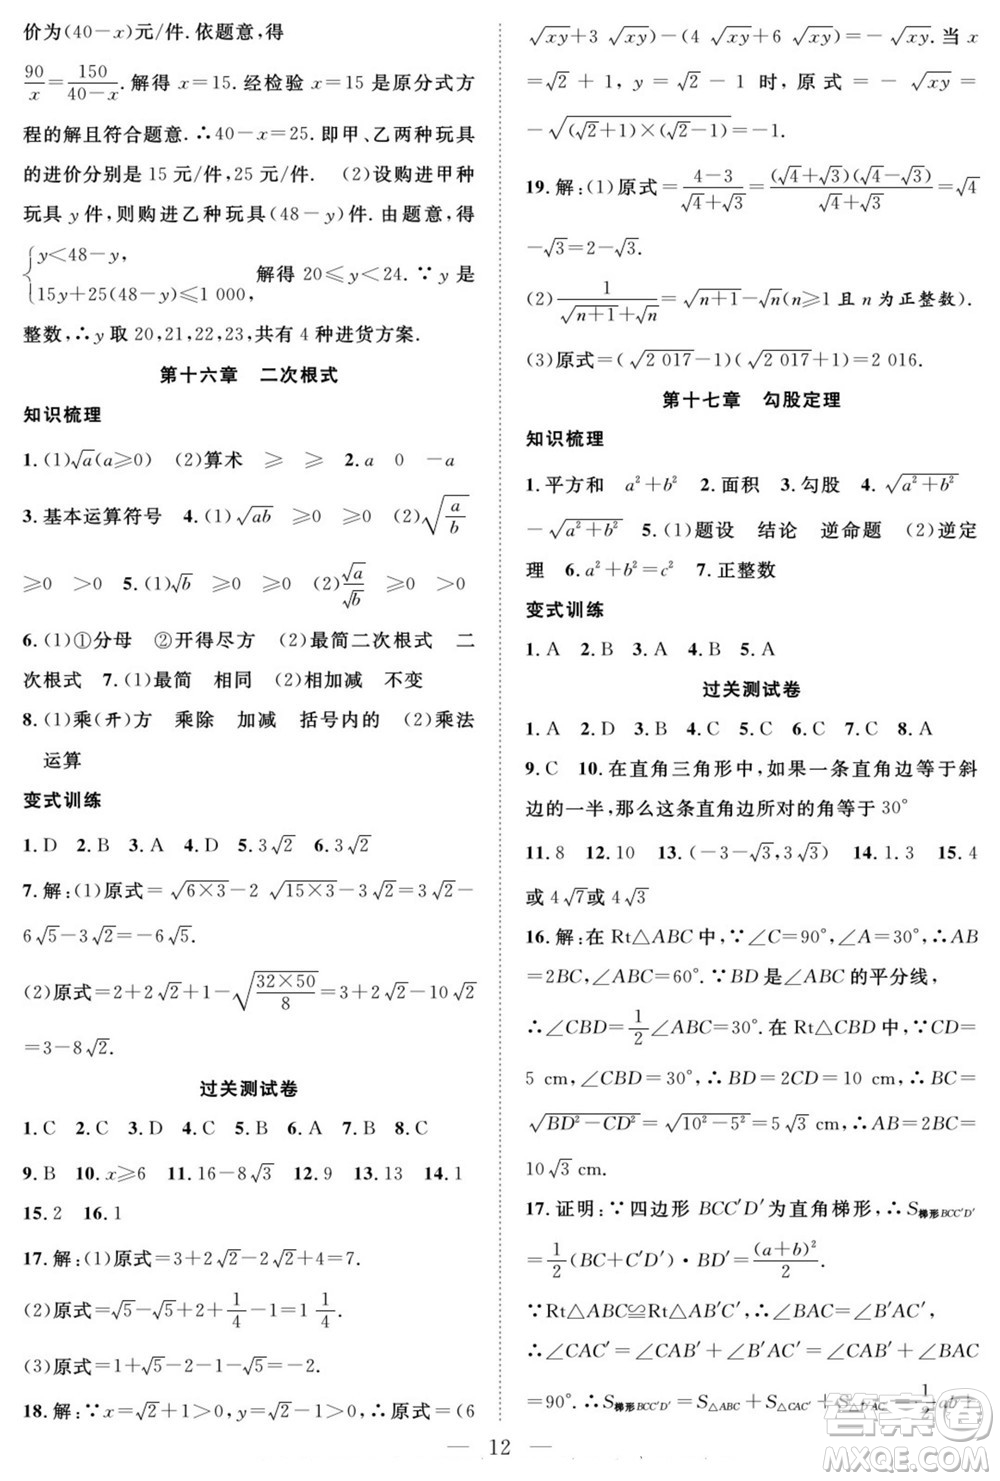 价为(40－x)元/件.依题意,得
90/x＝150/(40－x).解得 x＝15.经检验 x＝15 是原分式方
程的解且符合题意.∴40－x＝25.即甲、乙两种玩具
的进价分别是 15 元/件,25 元/件.　(2)设购进甲种
玩具 y 件,则购进乙种玩具(48－y)件.由题意,得
{y＜48－y,
15y＋25(48－y)≤1 000,　解得 20≤y＜24.∵y 是
整数,∴y 取 20,21,22,23,共有 4 种进货方案.
第十六章　二次根式
知识梳理
1.(1)√a(a≥0)　(2)算术　≥　≥　2.a　0　－a
3.基本运算符号　4.(1)√(ab)　≥0　≥0　(2)√(a/b)
≥0　＞0　5.(1)√b　≥0　≥0　(2)√a/√b　≥0　＞0
6.(1)①分母　②开得尽方　(2)最简二次根式　二
次根式　7.(1)最简　相同　(2)相加减　不变
8.(1)乘(开)方　乘除　加减　括号内的　(2)乘法
运算
变式训练
1.D　2.B　3.A　4.D　5.3√2　6.3√2
7.解:(1)原式＝√(6×3)－2√(15×3)＝3√2－
6√5－3√2＝－6√5.
(2)原式＝2＋2√2＋1－√(32×50/8)＝3＋2√2－10√2
＝3－8√2.
过关测试卷
1.C　2.C　3.D　4.C　5.B　6.A　7.B　8.C
9.B　10.x≥6　11.16－8√3　12.9　13.13　14.1
15.2　16.1
17.解:(1)原式＝3＋2√2－2√2＋4＝7.
(2)原式＝√5－√5＋2＋1/4－1＝1 1/4.
(3)原式＝1＋√5－√5－2＋1－2＝－2.
18.解:∵x＝√2＋1＞0,y＝√2－1＞0,∴原式＝(6
√(xy)＋3√(xy))－(4√(xy)＋6√(xy))＝－√(xy).当 x
＝√2＋1,y＝√2－1 时,原式＝－√(xy)＝
－√((√2＋1)×(√2－1))＝－1.
19.解:(1)原式＝(4－3)/(√4＋√3)＝(√4＋√3)(√4－√3)/(√4＋√3)＝√4
－√3＝2－√3.
(2)1/(√(n＋1)＋√n)＝√(n＋1)－√n(n≥1 且 n 为正整数).
(3)原式＝(√2 017－1)(√2 017＋1)＝2 016.
第十七章　勾股定理
知识梳理
1.平方和　a²＋b²　2.面积　3.勾股　4.√(a²＋b²)
－√(a²＋b²)　5.(1)题设　结论　逆命题　(2)逆定
理　6.a²＋b²＝c²　7.正整数
变式训练
1.A　2.B　3.A　4.B　5.A
过关测试卷
1.A　2.D　3.B　4.C　5.C　6.C　7.C　8.A
9.C　10.在直角三角形中,如果一条直角边等于斜
边的一半,那么这条直角边所对的角等于 30°
11.8　12.10　13.(－3－√3,3√3)　14.1.3　15.4
或 4√7或 4√3
16.解:在 Rt△ABC 中,∵∠C＝90°,∠A＝30°,∴AB
＝2BC,∠ABC＝60°.∵BD 是∠ABC 的平分线,
∴∠CBD＝1/2∠ABC＝30°.在 Rt△CBD 中,∵CD＝
5 cm,∠CBD＝30°,∴BD＝2CD＝10 cm,∴BC＝
√(BD²－CD²)＝√(10²－5²)＝5√3 cm,∴AB＝2BC＝
10√3 cm.
17.证明:∵四边形 BCC′D′为直角梯形,∴S梯形BCC′D′
＝1/2(BC＋C′D′)·BD′＝(a＋b)²/2.
∵Rt△ABC≌Rt△AB′C′,∴∠BAC＝∠B′AC′,
∴∠CAC′＝∠CAB′＋∠B′AC′＝∠CAB′＋∠BAC
＝90°.∴S梯形BCC′D′＝S△ABC＋S△CAC′＋S△D′AC′＝1/2ab＋
12
答案圈